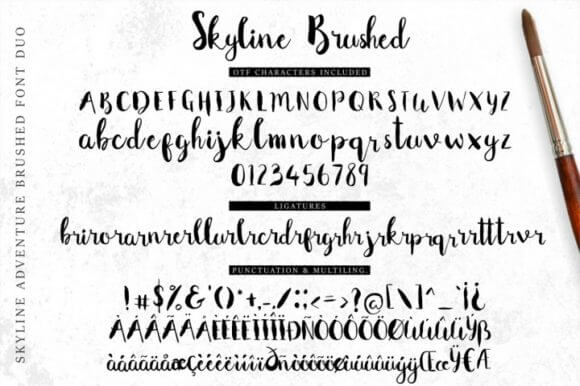 Skyline Brushed
OTF CHARACTERS INCLUDED
ABCDEFGHIJKLMNOPQRSTUVWXYZ
abcdefghijklmnopqrstuvwxyz
0123456789
LIGATURES
brirorarnrerllurlrcrdrfrgrhrjrkrprqrrrttttrvr
PUNCTUATION & MULTILING.
!#$%&'()*+,-./:;<=>?©[\]^_`¡¿
ÀÁÂÃÄÅÈÉÊËÌÍÎÏÐÑÒÓÔÕÖØÙÚÛÜÝß
àáâãäåæçèéêëìíîïðñòóôõöøùúûüýÿŒœŸ€Æ
SKYLINE ADVENTURE BRUSHED FONT DUO